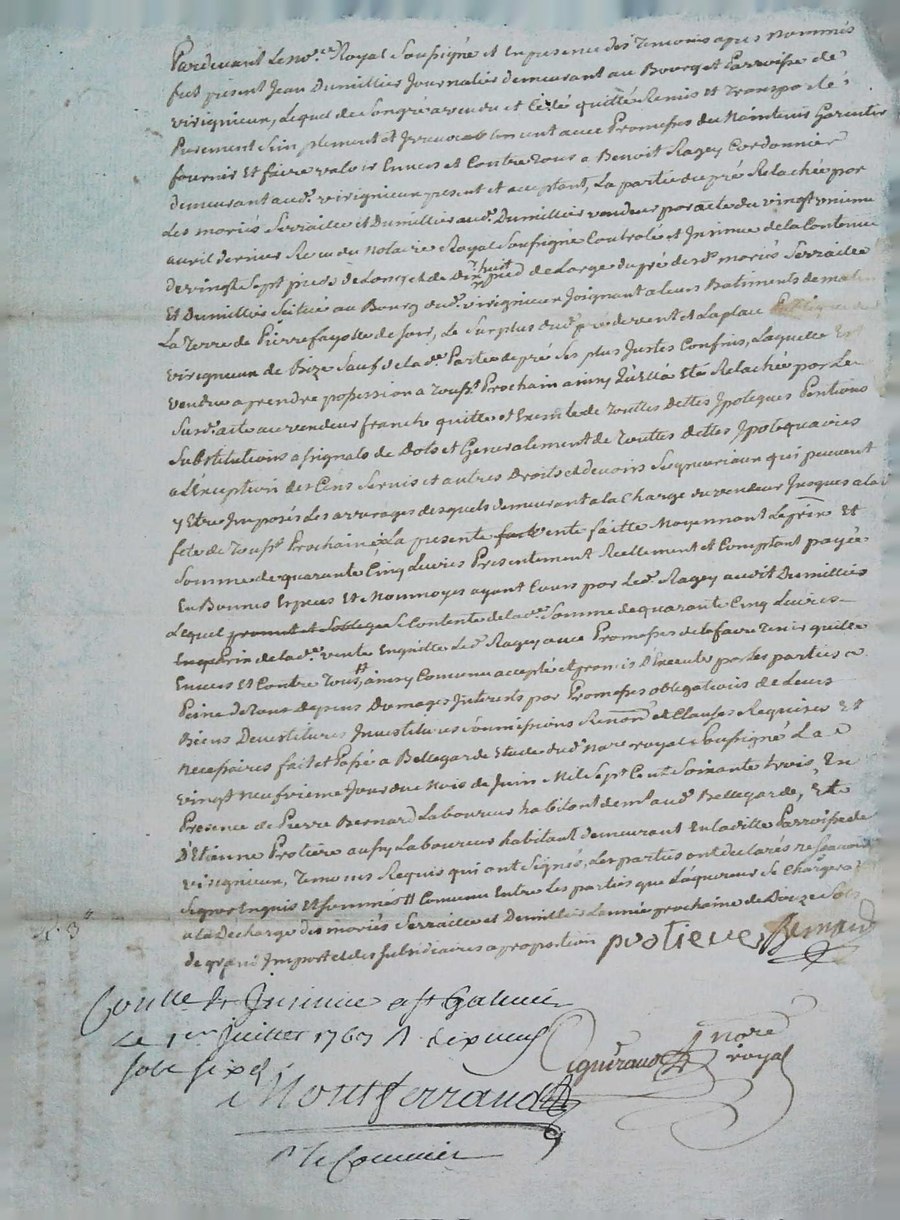 Pardevant Le no.re Royal Soussigné et En presence des Temoins apres nommés
fut present Jean Dumillier Journalier demeurant au Bourg et Parroisse de
virignieux, Lequel de Son gré a vendu et Cédé quitté Remis et Transporté
Purement Simplement et Irrevocablement avec Promesses de Maintenir Garentir
fournir Et faire valoir Envers et Contre Tous a Benoit Ragey Cordonnier
demeurant aud.t virignieux present et acceptant, La partie du pré Relachée par
Les mariés Serraille et Dumillier aud.t Dumillier vendeur par acte du vingt
avril dernier Recu du Notaire Royal Soussigné Controlé et Insinué de la Contenue
de vingt Sept pieds de Long et de Dix huit pied de Large du pré desd.ts mariés Serraille
Et Dumillier Scitué au Bourg dud.t virignieux Joignant a leurs Batiments de matin
La Terre de Pierre fayolle de Soir, Le Surplus dud.t pré de vent et La place
virignieux de Bize Sauf de la d.te Partie de pré Ses plus Justes Confins, Laquelle Est
vendue a prendre possession a Touss.t Prochain ainsy qu'Elle a Eté Relachée par Le
Susd.t acte au vendeur franche quitte et Exempte de Touttes dettes Ipoteques Pentions
Substitutions assignats de Dots et Generalement de Touttes dettes Ipotequaires
a L'Exception des Cens Servis et autres Droits et devoirs Seigneuriaux qui peuvent
y Etre Imposés Les arrerages desquels demeurant a la Charge du vendeur Jusques a la
fete de Touss.t Prochaine, La presente vente faitte Moyennant Le prix Et
Somme de quarante Cinq Livres Presentement Reellement et Comptant payée
En Bonnes Especes Et Monnoyes ayant Cours par Led.t Ragey audit Dumillier
Lequel promet et Soblige Se Contente de lad.te Somme de quarante Cinq Livres
de lad.te vente En quitte Led.t Ragey avec Promesses de le faire Tenir quitte
Envers Et Contre Tous, ainsy Convenu accepté et promis d'Executer par Les parties a
Peine de Tous depens Domages Interests par Promesses obligations de Leurs
Biens Devestitures Investitures Soumissions Renon.ons et Clauses Requises Et
necessaires fait et Passé a Bellegarde Etude dud.t No.re royal Soussigné Le
vingt neufvieme Jour du Mois de Juin Mil Sept Cent Soixante trois, En
Presence de Pierre Bernard Laboureur habitant dem.t aud.t Bellegarde, Et
D'Etienne Protière aussy Laboureur habitant demeurant En la ditte Parroisse de
virignieux, Temoins Requis qui ont Signés, Les parties ont declarés ne Scavoir
Signer Enquis Et Sommés Convenu Entre Les parties que L'aquereur Se Chargera
a la Decharge des mariés Serraille et Dumillier L'année prochaine de Douze Sols
de grand Import et des Subsidiaires a proportion
protiere Bernard
n.re
royal
Con.lle et Insinué a St Galmier
Le 1.er Juillet 1763 R dix neuf
sols six d.
Montferrand